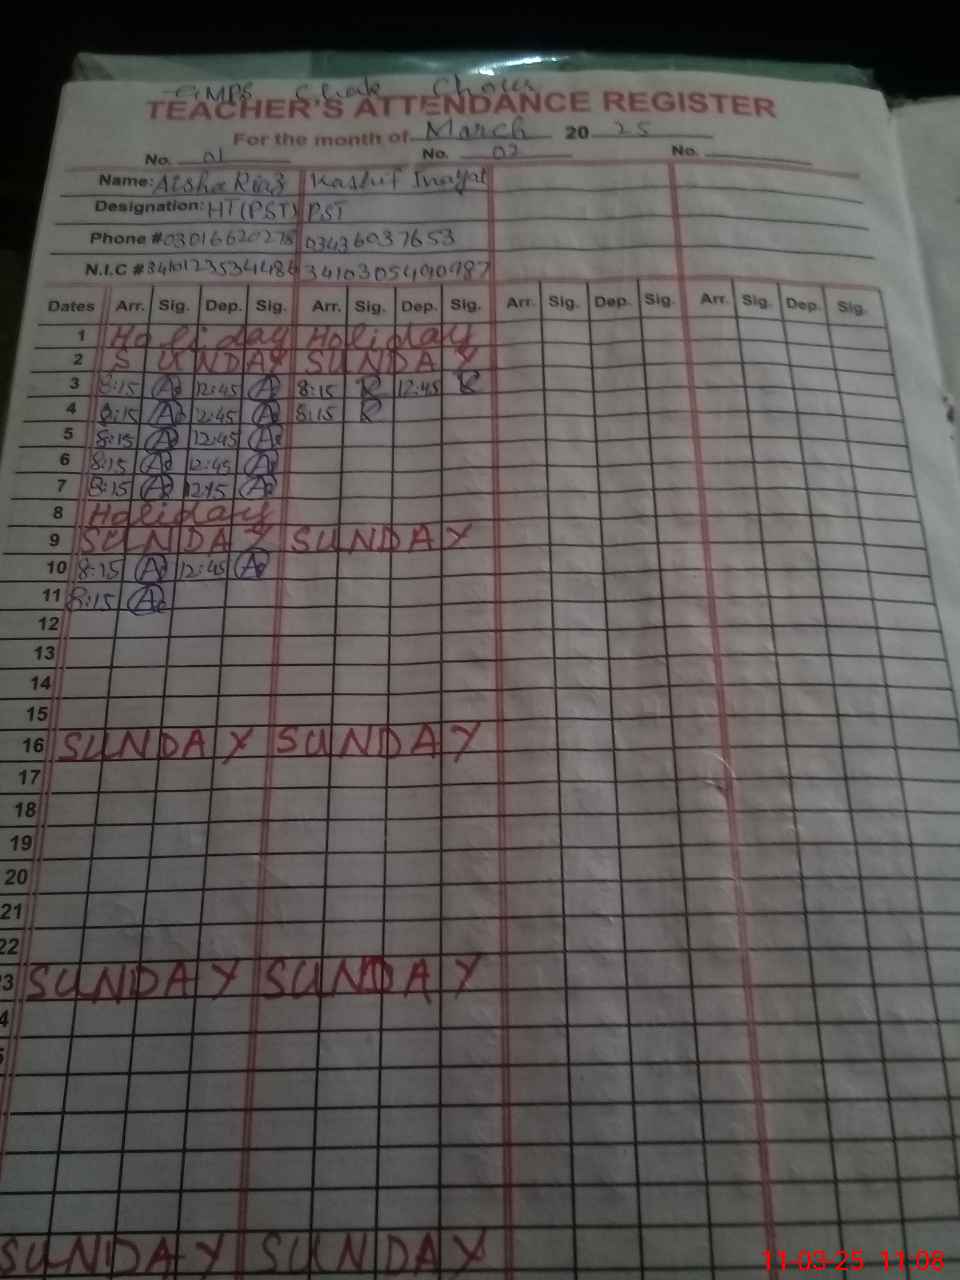 GMPS Chak Chous
TEACHER'S ATTENDANCE REGISTER
For the month of March 20 25
No. 01 No. 02 No.
Name: Aisha Riaz Kashif Inayat
Designation: HT(PST) PST
Phone #03016620278 03436037653
N.I.C #3410123534486 3410305490987
Dates Arr. Sig. Dep. Sig. Arr. Sig. Dep. Sig. Arr. Sig. Dep. Sig. Arr. Sig. Dep. Sig.
1 Holiday Holiday
2 SUNDAY SUNDAY
3 8:15 12:45 8:15 12:45
4 8:15 12:45 8:15
5 8:15 12:45
6 8:15 12:45
7 8:15 12:45
8 Holiday
9 SUNDAY SUNDAY
10 8:15 12:45
11 8:15
12
13
14
15
16 SUNDAY SUNDAY
17
18
19
20
21
22
23 SUNDAY SUNDAY
4
5
SUNDAY SUNDAY
11-03-25 11:08